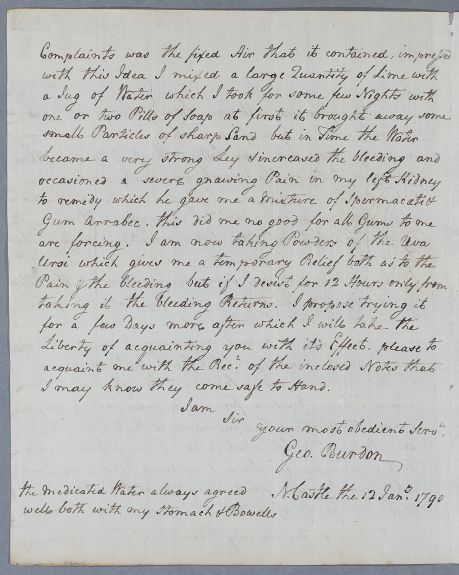 Complaints was the fixed Air that it contained, impressed
with this Idea I mixed a large Quantity of Lime with
a Jug of Water which I took for some few Nights with
one or two Pills of Soap at first it brought away some
small Particles of sharp Sand but in Time the Water
became a very strong Ley & increased the bleeding and
occasioned a severe gnawing Pain in my left Kidney
to remedy which he gave me a Mixture of Spermacati &
Gum Arrabec. this did me no good for all Gums to me
are forcing. I am now taking Powders of the Uva
Ursi which gives me a temporary Relief both as to the
Pain & the bleeding but if I desist for 12 Hours only from
taking it the bleeding Returns. I propose trying it
for a few Days more after which I will take the
Liberty of acquainting you with it's Effect. please to
acquaint me with the Rect. of the inclosed Notes that
I may know they come safe to Hand.
I am
Sir
your most obedient Servt.
Geo. Burdon
NCastle the 12 Jany. 1790
the Medicated Water always agreed
well both with my Stomach & Bowells